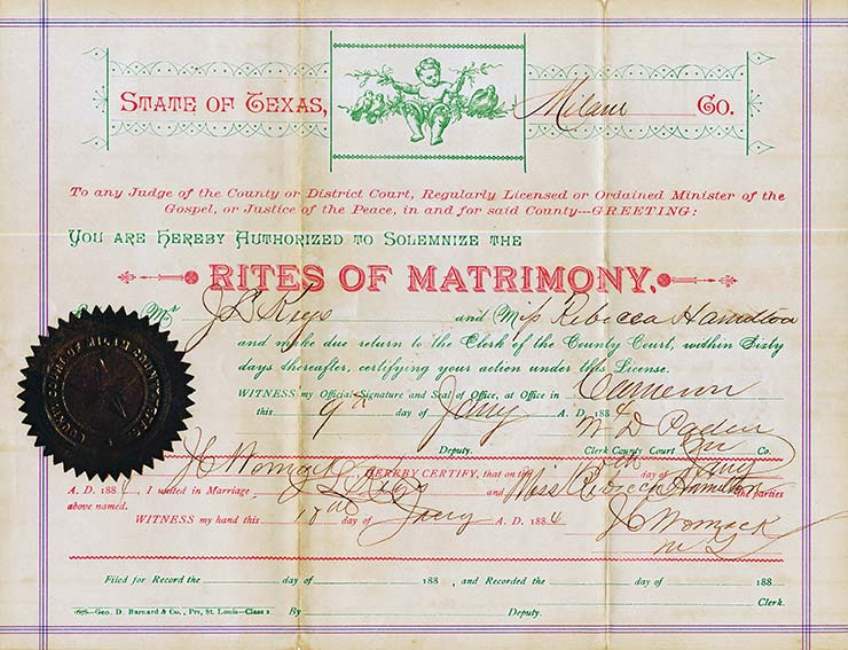 STATE OF TEXAS, Milam Co.
To any Judge of the County or District Court, Regularly Licensed or Ordained Minister of the
Gospel, or Justice of the Peace, in and for said County---GREETING:
YOU ARE HEREBY AUTHORIZED TO SOLEMNIZE THE
RITES OF MATRIMONY,
Mr J L Keys and Miss Rebecca Hamilton
and make due return to the Clerk of the County Court, within Sixty
days thereafter, certifying your action under this License.
WITNESS my Official Signature and Seal of Office, at Office in Cameron
this 9th day of Jany A. D. 1884
W D Paden
Deputy. Clerk County Court Co.
J C Womack HEREBY CERTIFY, that on the day of Jany
A. D. 188 , I united in Marriage, and Miss Rebecca Hamilton the parties
above named.
WITNESS my hand this day of Jany A. D. 1884 J C Womack
M G
Filed for Record the day of 188 , and Recorded the day of 188
Clerk.
Geo. D. Barnard & Co., Prs, St. Louis—Class 2 By Deputy.